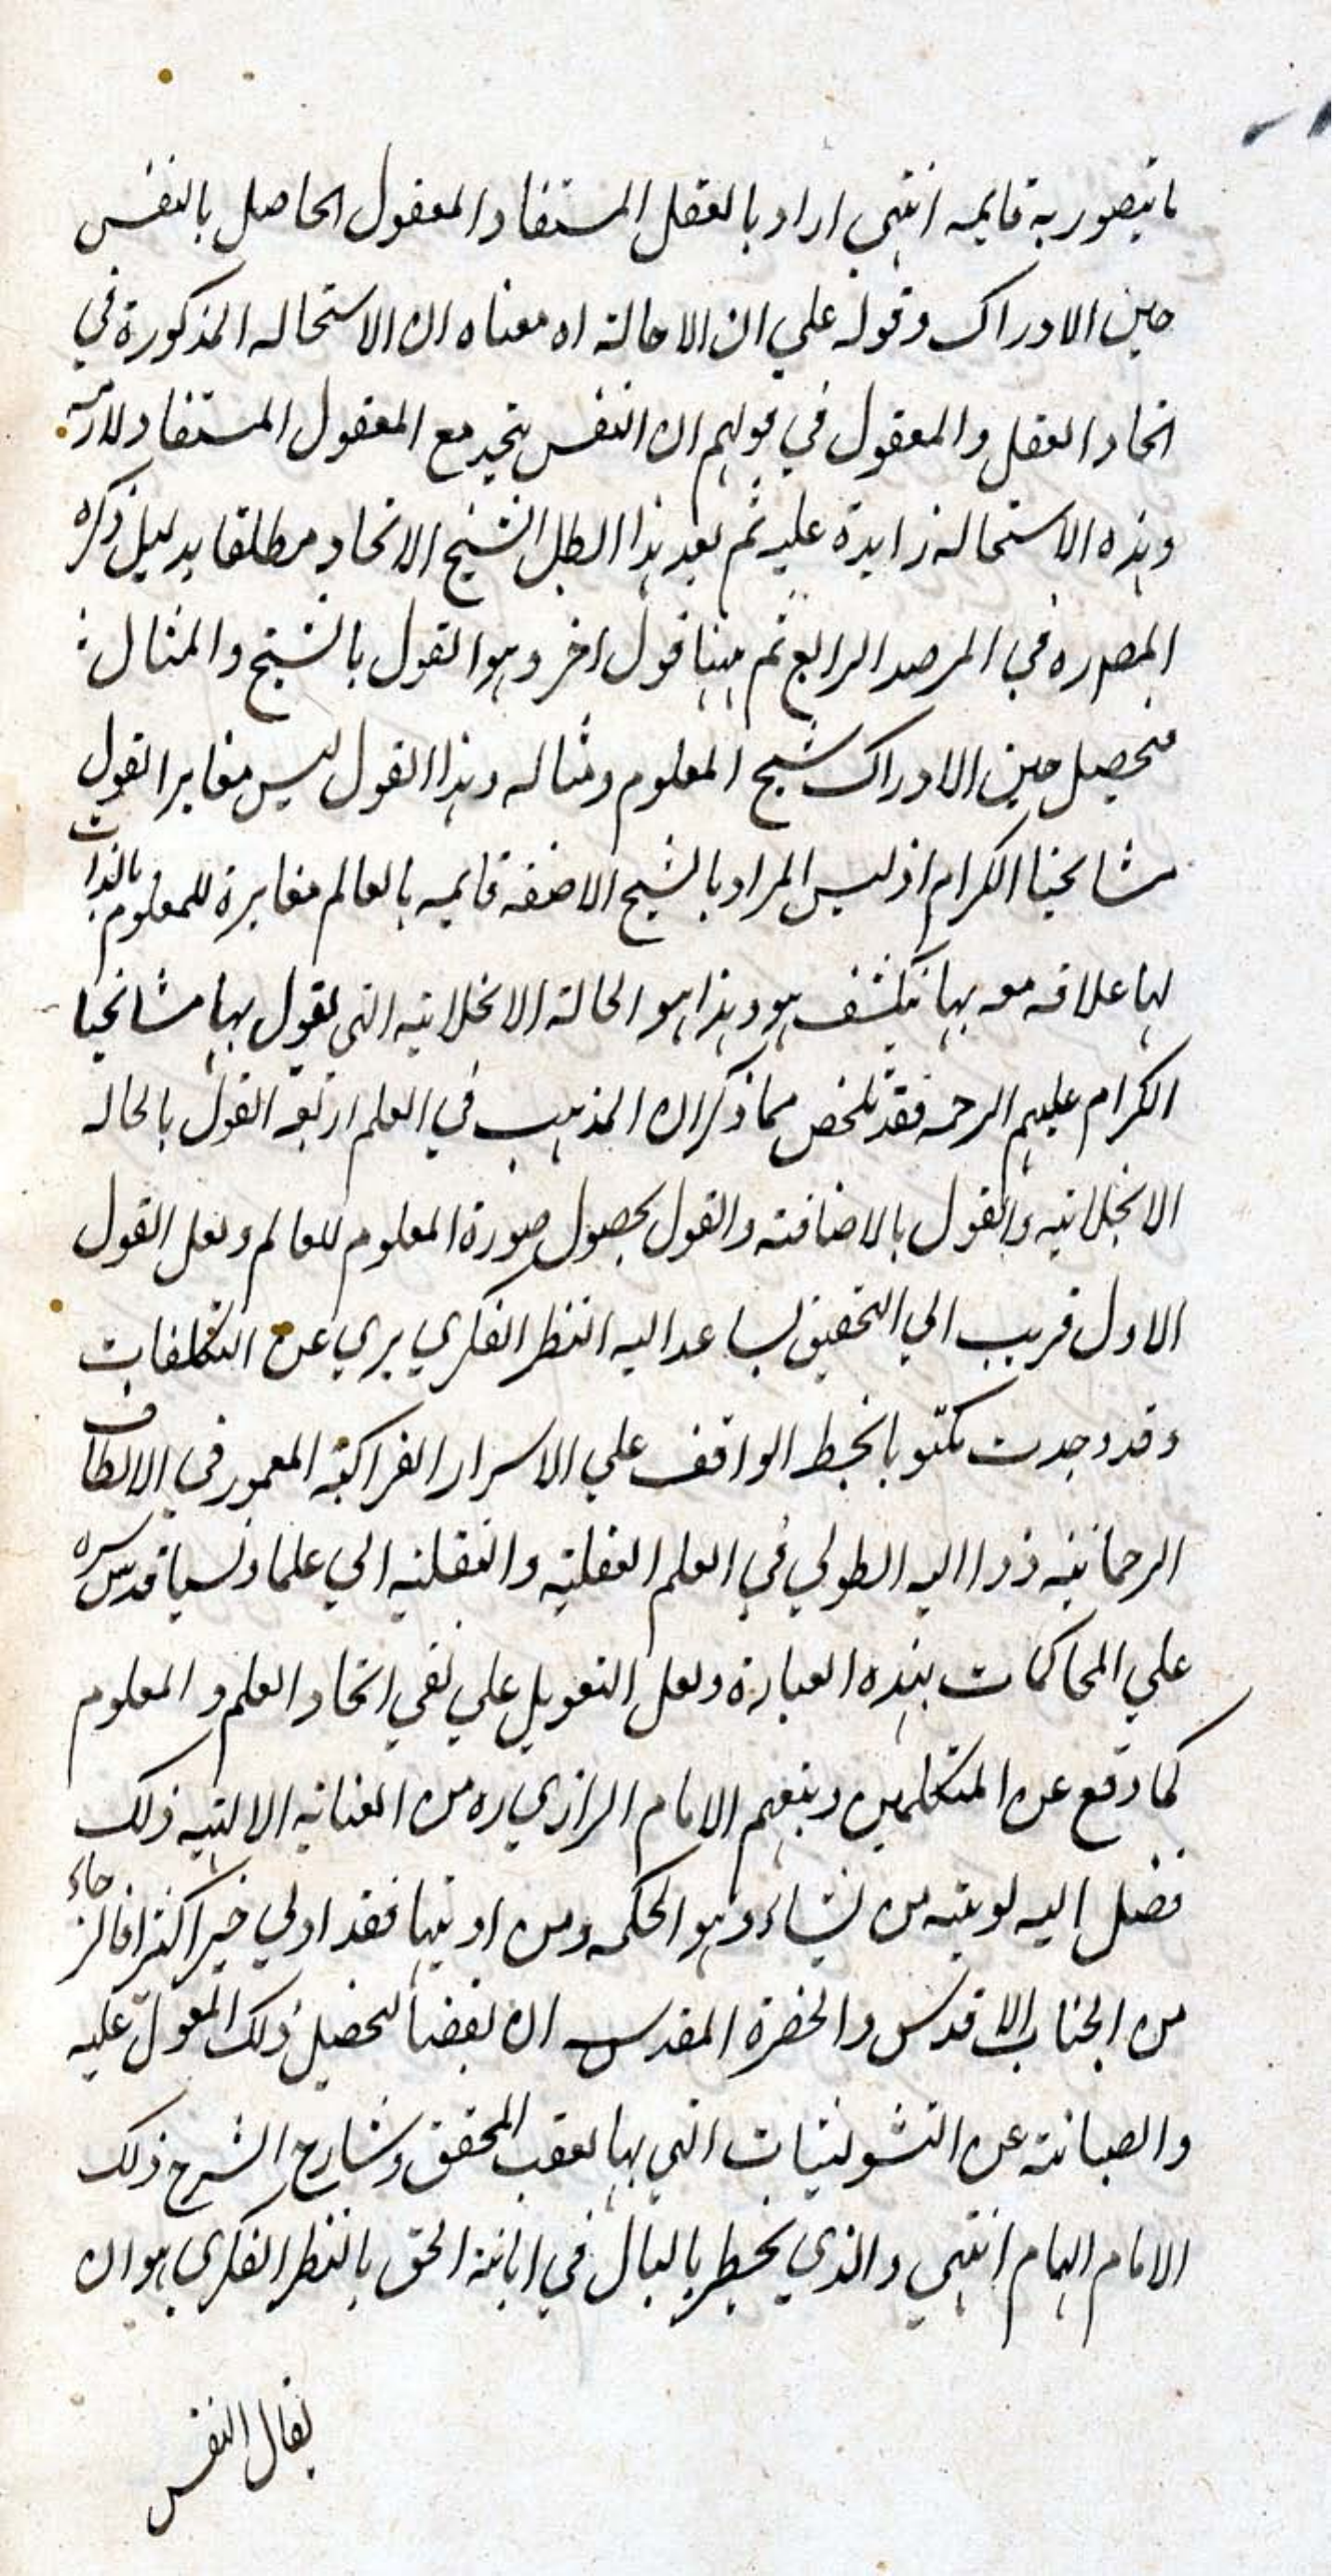 ما يتصور به قايمه انتهي اراد بالعقل المستفاد المعقول الحاصل بالنفس
حين الادراك وقوله علي ان الاحالة اه معناه ان الاستحاله المذكورة في
اتحاد العقل والمعقول في قولهم ان النفس يتحد مع المعقول المستفاد لازمه
وهذه الاستحاله زايدة عليه ثم بعد هذا ابطل الشيخ الاتحاد مطلقا بدليل ذكره
المصدره في المرصد الرابع ثم ههنا قول اخر وهو القول بالشبح والمثال
فيحصل حين الادراك شبح المعلوم ومثاله وهذا القول ليس مغايرا لقول
مشايخنا الكرام اذ ليس المراد بالشبح الا صفة قايمه بالعالم مغايرة للمعلوم بالذات
لها علاقه معه بها ينكشف هو وهذا هو الحالة الانجلائيه التي يقول بها مشايخنا
الكرام عليهم الرحمه فقد تلخص مما ذكر ان المذهب في العلم اربعة القول بالحاله
الانجلائيه والقول بالاضافة والقول بحصول صورة المعلوم للعالم ولعل القول
الاول قريب الي التحقيق يساعد اليه النظر الفكري بري عن التكلفات
وقد وجدت مكتوبا بخط الواقف علي الاسرار المعمور في الالطاف
الرحمانيه ذو اليد الطولي في العلم العقليه والنقليه الي علما ونسبا قدس سره
علي المحاكمات بهذه العبارة ولعل التعويل علي نفي اتحاد العلم والمعلوم
كما وقع عن المتكلمين وتبعهم الامام الرازي ره من العنايه الالهيه ذلك
فضل اليه يوتيه من يشاء وهو الحكمه ومن اوتيها فقد اولي خيرا كثيرا فالرجاء
من الجناب الاقدس والحضرة المقدس ان يفضنا لتحصيل ذلك المعول عليه
والصيانة عن التشويشات التي بها تعقب المحقق وشارح الشرح ذلك
الامام الهمام انتهي والذي يخطر بالبال في ابانة الحق بالنظر الفكري هو ان
يقال النفس